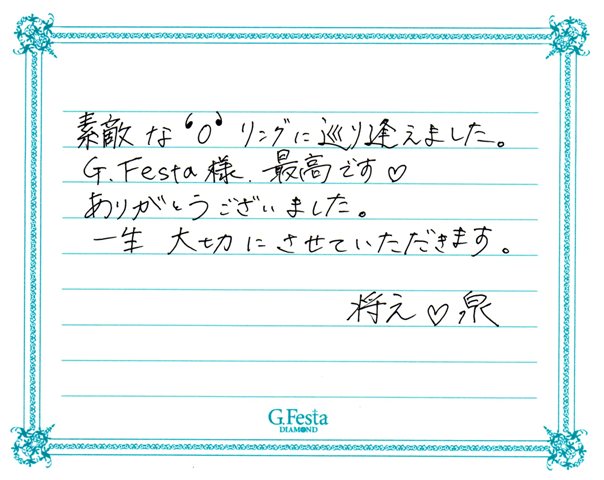 素敵な“0”リングに巡り逢えました。
G.Festa様.最高です♡
ありがとうございました。
一生 大切にさせていただきます。
将え♡泉
G.Festa
DIAMOND